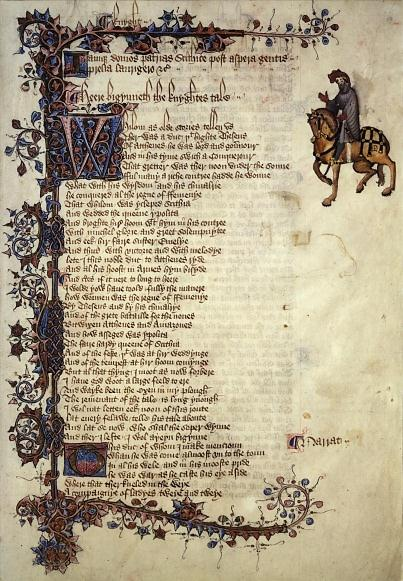 Knyght
Iamque domos patrias Scithice post aspera gentis
prelia laurigero &c
Heere bigynneth the knyghtes tale
Whilom as olde stories tellen us
Ther was a duc þt highte Theseus
Of Atthenes he was lord and gouernour
And in his tyme swich a conquerour
That gretter was ther noon vnder the sonne
Ful many a riche contree hadde he wonne
What with his wysdom and his chiualrie
He conquered al the regne of ffemenye
That whilom was ycleped Scithia
And wedded the queene ypolita
And broghte hir hoom wt hym in his contree
With muchel glorie and greet solempnytee
And eek hir faire suster Emelye
And thus with victorie and with melodye
Lete I this noble duc to Atthenes ryde
And al his hoost in Armes hym bisyde
And certes if it nere to long to heere
I wolde yow haue toold fully the manere
How wonnen was the regne of ffemenye
By Theseus and by his chiualrye
And of the grete bataille for the nones
Bitwixen Atthenes and Amazones
And how asseged was ypolita
The faire hardy queene of Scithia
And of the feste þt was at hir weddynge
And of the tempest at hir hoom comynge
But al that thyng I moot as now forbere
I haue god woot a large feeld to ere
And wayke been the Oxen in my plough
The remenant of the tale is long ynough
I wol nat letten eek noon of this route
Lat euery felawe telle his tale aboute
And lat se now who shal the soper wynne
And ther I lefte I wol ayeyn bigynne
This duc of whom I make mencioun
Narrat
Whan he was come almoost vn to the toun
In al his wele and in his mooste pryde
He was war as he caste his eye aside
Where that ther kneled in the weye
A compaignye of ladyes tweye and tweye